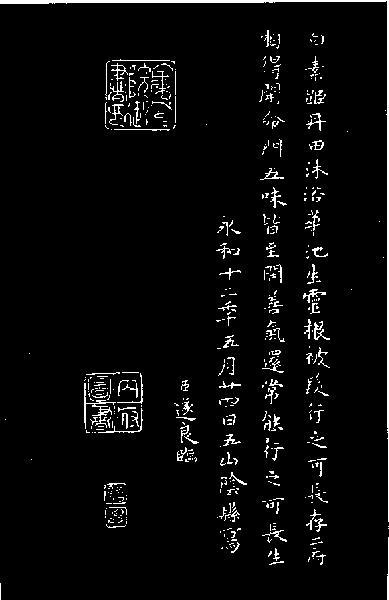 白素姬丹田沐浴華池生靈根被髮行之可長存二府
相得開命門五味皆至開善氣還常能行之可長生
永和十二年五月廿四日五山陰縣寫
臣遂良臨
內府圖書